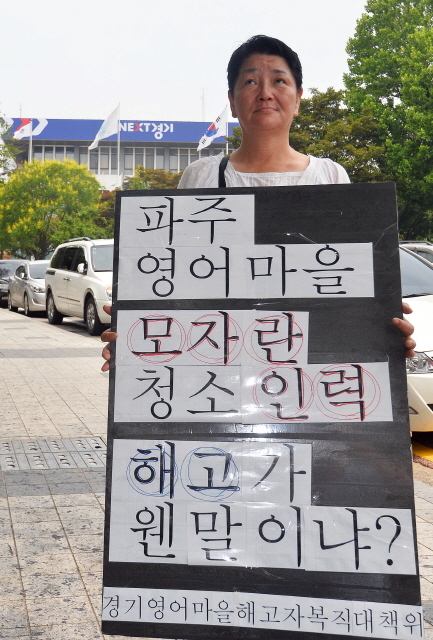 NEXT경기
파주
영어마을
모자란
청소인력
해고가
웬말이냐?
경기영어마을해고자복직대책위